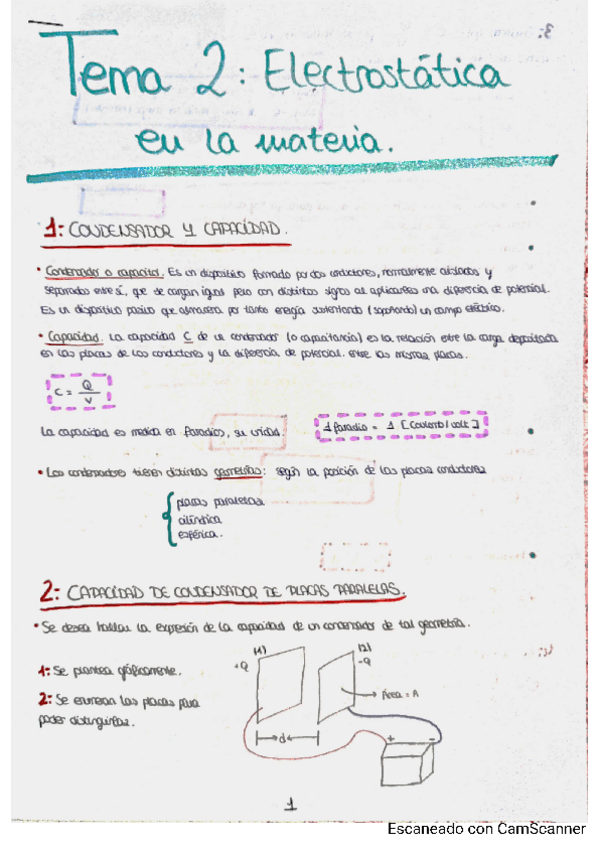 Tema 2: Electrostática
en la materia.
1: CONDENSADOR Y CAPACIDAD.
• Condensador o capacitor. Es un dispositivo formado por dos conductores, normalmente aislados y
separados entre sí, que se cargan igual pero con distintos signos al aplicarles una diferencia de potencial.
Es un dispositivo pasivo que almacena por tanto energía sustentando (soportando) un campo eléctrico.
• Capacidad. La capacidad C de un condensador (o capacitancia) es la relación entre la carga depositada
en las placas de los conductores y la diferencia de potencial entre las mismas placas.
C = Q / V
La capacidad es medida en faradios, su unidad.
1 faradio = 1 [Coulomb / volt]
• Los condensadores tienen distintas geometrías: según la posición de las placas conductoras
placas paralelas.
cilíndrica
esférica.
2: CAPACIDAD DE CONDENSADOR DE PLACAS PARALELAS.
• Se desea hallar la expresión de la capacidad de un condensador de tal geometría.
1: Se plantea gráficamente.
2: Se enumeran las placas para
poder distinguirlas.
(1) (2)
+Q -Q
Área = A
d
+ -
1
Escaneado con CamScanner